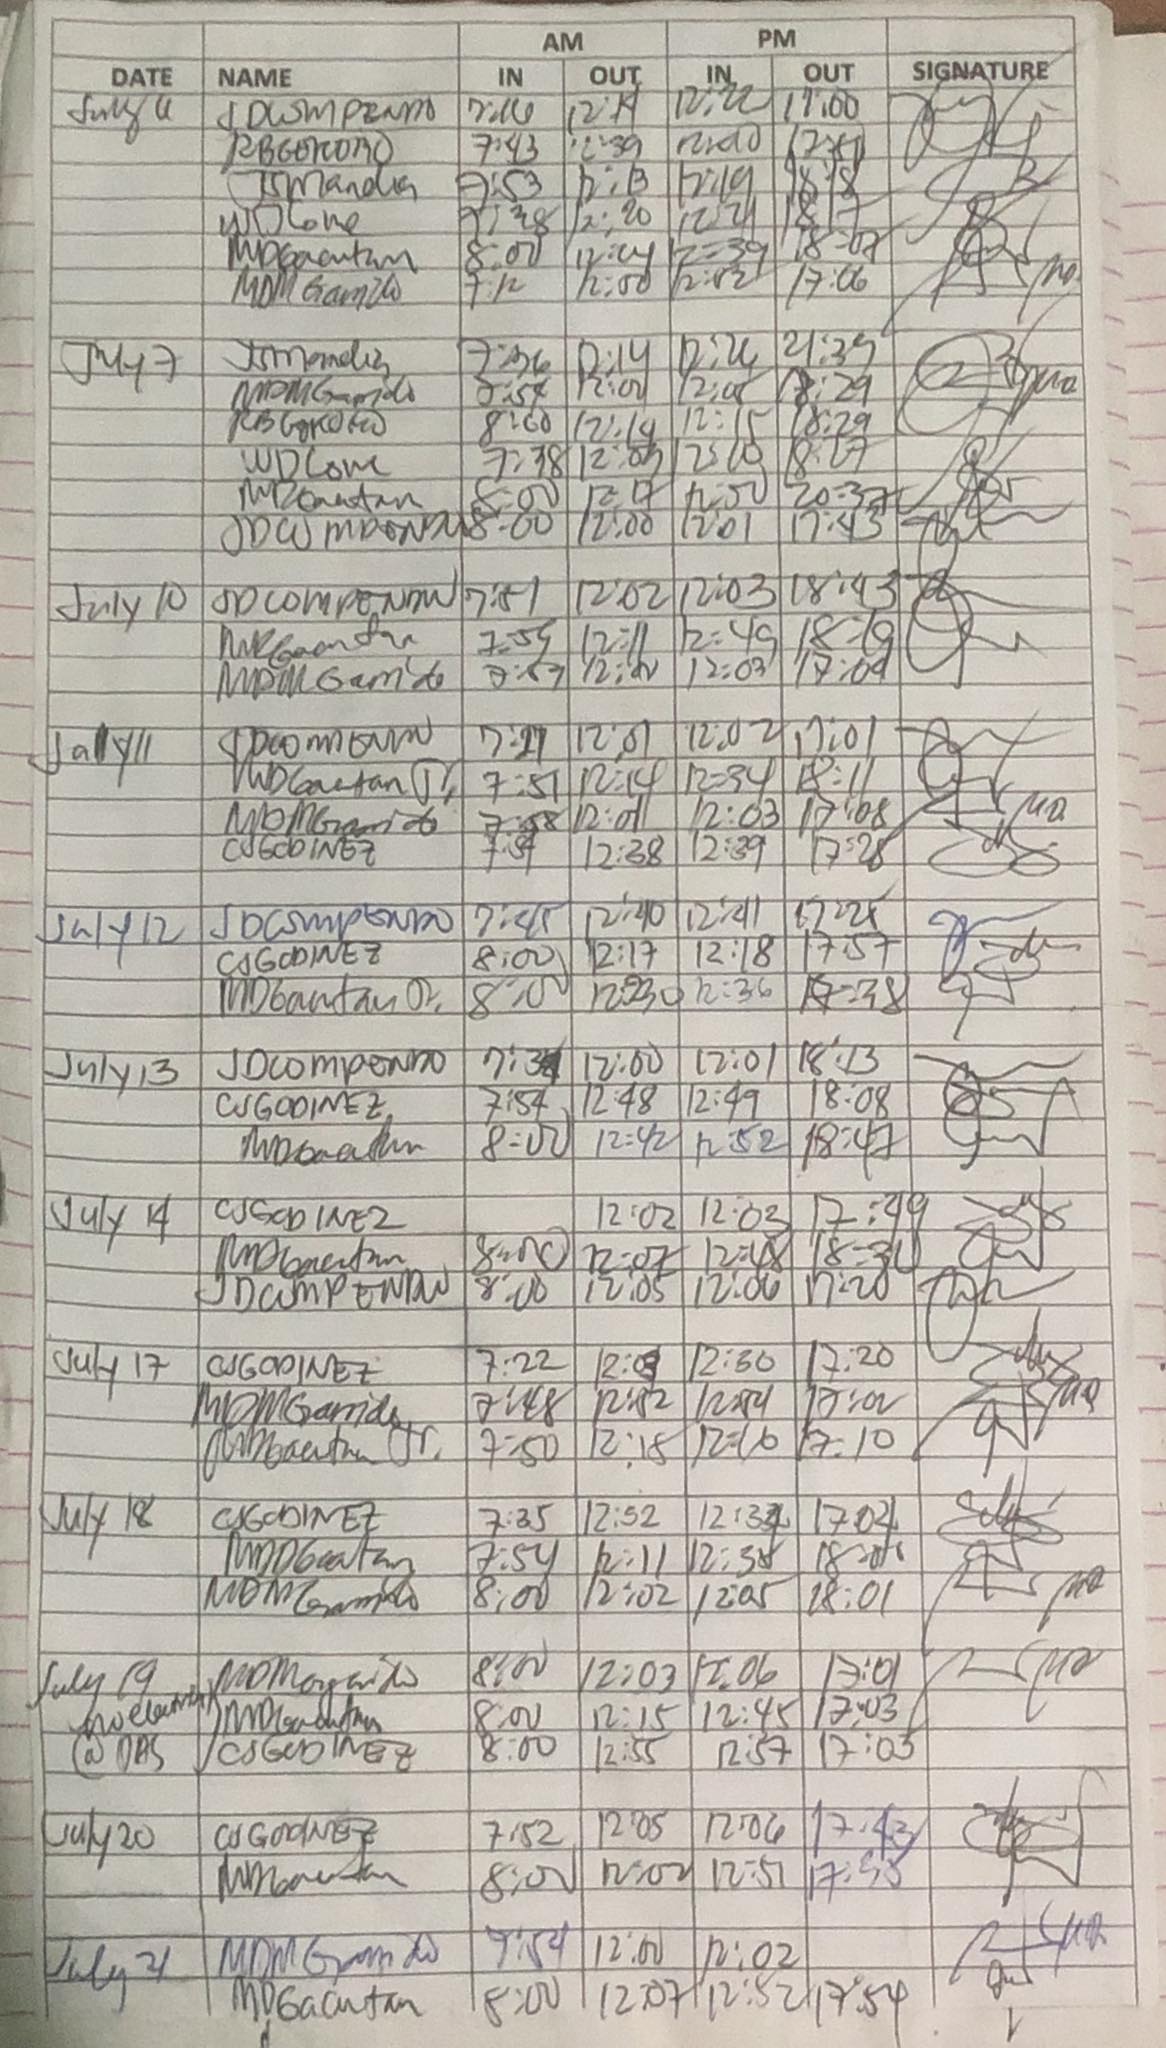 AM PM
DATE NAME IN OUT IN OUT SIGNATURE
July 6 JDCOMPENDO 7:16 12:19 12:22 17:00
7:43 12:39
JSMandia 7:53 12:13 12:19 18:18
WDCone 7:38 12:20 12:21 18:17
MDGacutan 8:00 12:24 12:39 18:07
MDMGarrido 7:12 12:00 12:02 17:06
July 7 JSMandia 7:36 12:14 12:26 21:39
MDMGarrido 7:54 12:02 12:05 18:29
8:00 12:14 12:15 18:29
WDCone 7:38 12:09 12:10 18:27
MDGacutan 8:00 12:17 12:50 20:37
JDCOMPENDO 8:00 12:00 12:01 17:43
July 10 JDCOMPENDO 7:51 12:02 12:03 18:43
MDGacutan 7:59 12:11 12:49 18:19
MDMGarrido 7:57 12:00 12:03 17:09
July 11 JDCOMPENDO 12:01 12:02 17:01
MDGacutan Jr. 7:51 12:14 12:34 18:11
MDMGarrido 7:58 12:01 12:03 17:08
CSGODINEZ 12:38 12:39 17:28
July 12 JDCOMPENDO 7:45 12:40 12:41 17:25
CSGODINEZ 8:00 12:17 12:18 17:57
MDGacutan Jr. 8:00 12:30 12:36 17:38
July 13 JDCOMPENDO 12:00 12:01 18:13
CSGODINEZ 7:54 12:48 12:49 18:08
MDGacutan 8:00 12:42 12:52 18:47
July 14 CSGODINEZ 12:02 12:03 17:49
MDGacutan 8:00 12:07 12:48 18:30
JDCOMPENDO 8:00 12:05 12:06 17:20
July 17 CSGODINEZ 7:22 12:30 17:20
MDMGarrido 7:48 12:52 12:54 17:02
MDGacutan Jr. 7:50 12:15 17:10
July 18 CSGODINEZ 7:35 12:32 12:33 17:02
MDGacutan 7:54 12:11 12:38
MDMGarrido 8:00 12:02 12:05 18:01
July 19 MDMGarrido 8:00 12:03 12:06 17:01
MDGacutan 8:00 12:15 12:45 17:03
CSGODINEZ 8:00 12:55 12:57 17:03
July 20 CSGODINEZ 7:52 12:05 12:06 17:43
MDGacutan 8:00 12:02 12:51 17:55
July 21 MDMGarrido 7:54 12:00 12:02
MDGacutan 8:00 12:07 12:52 17:54